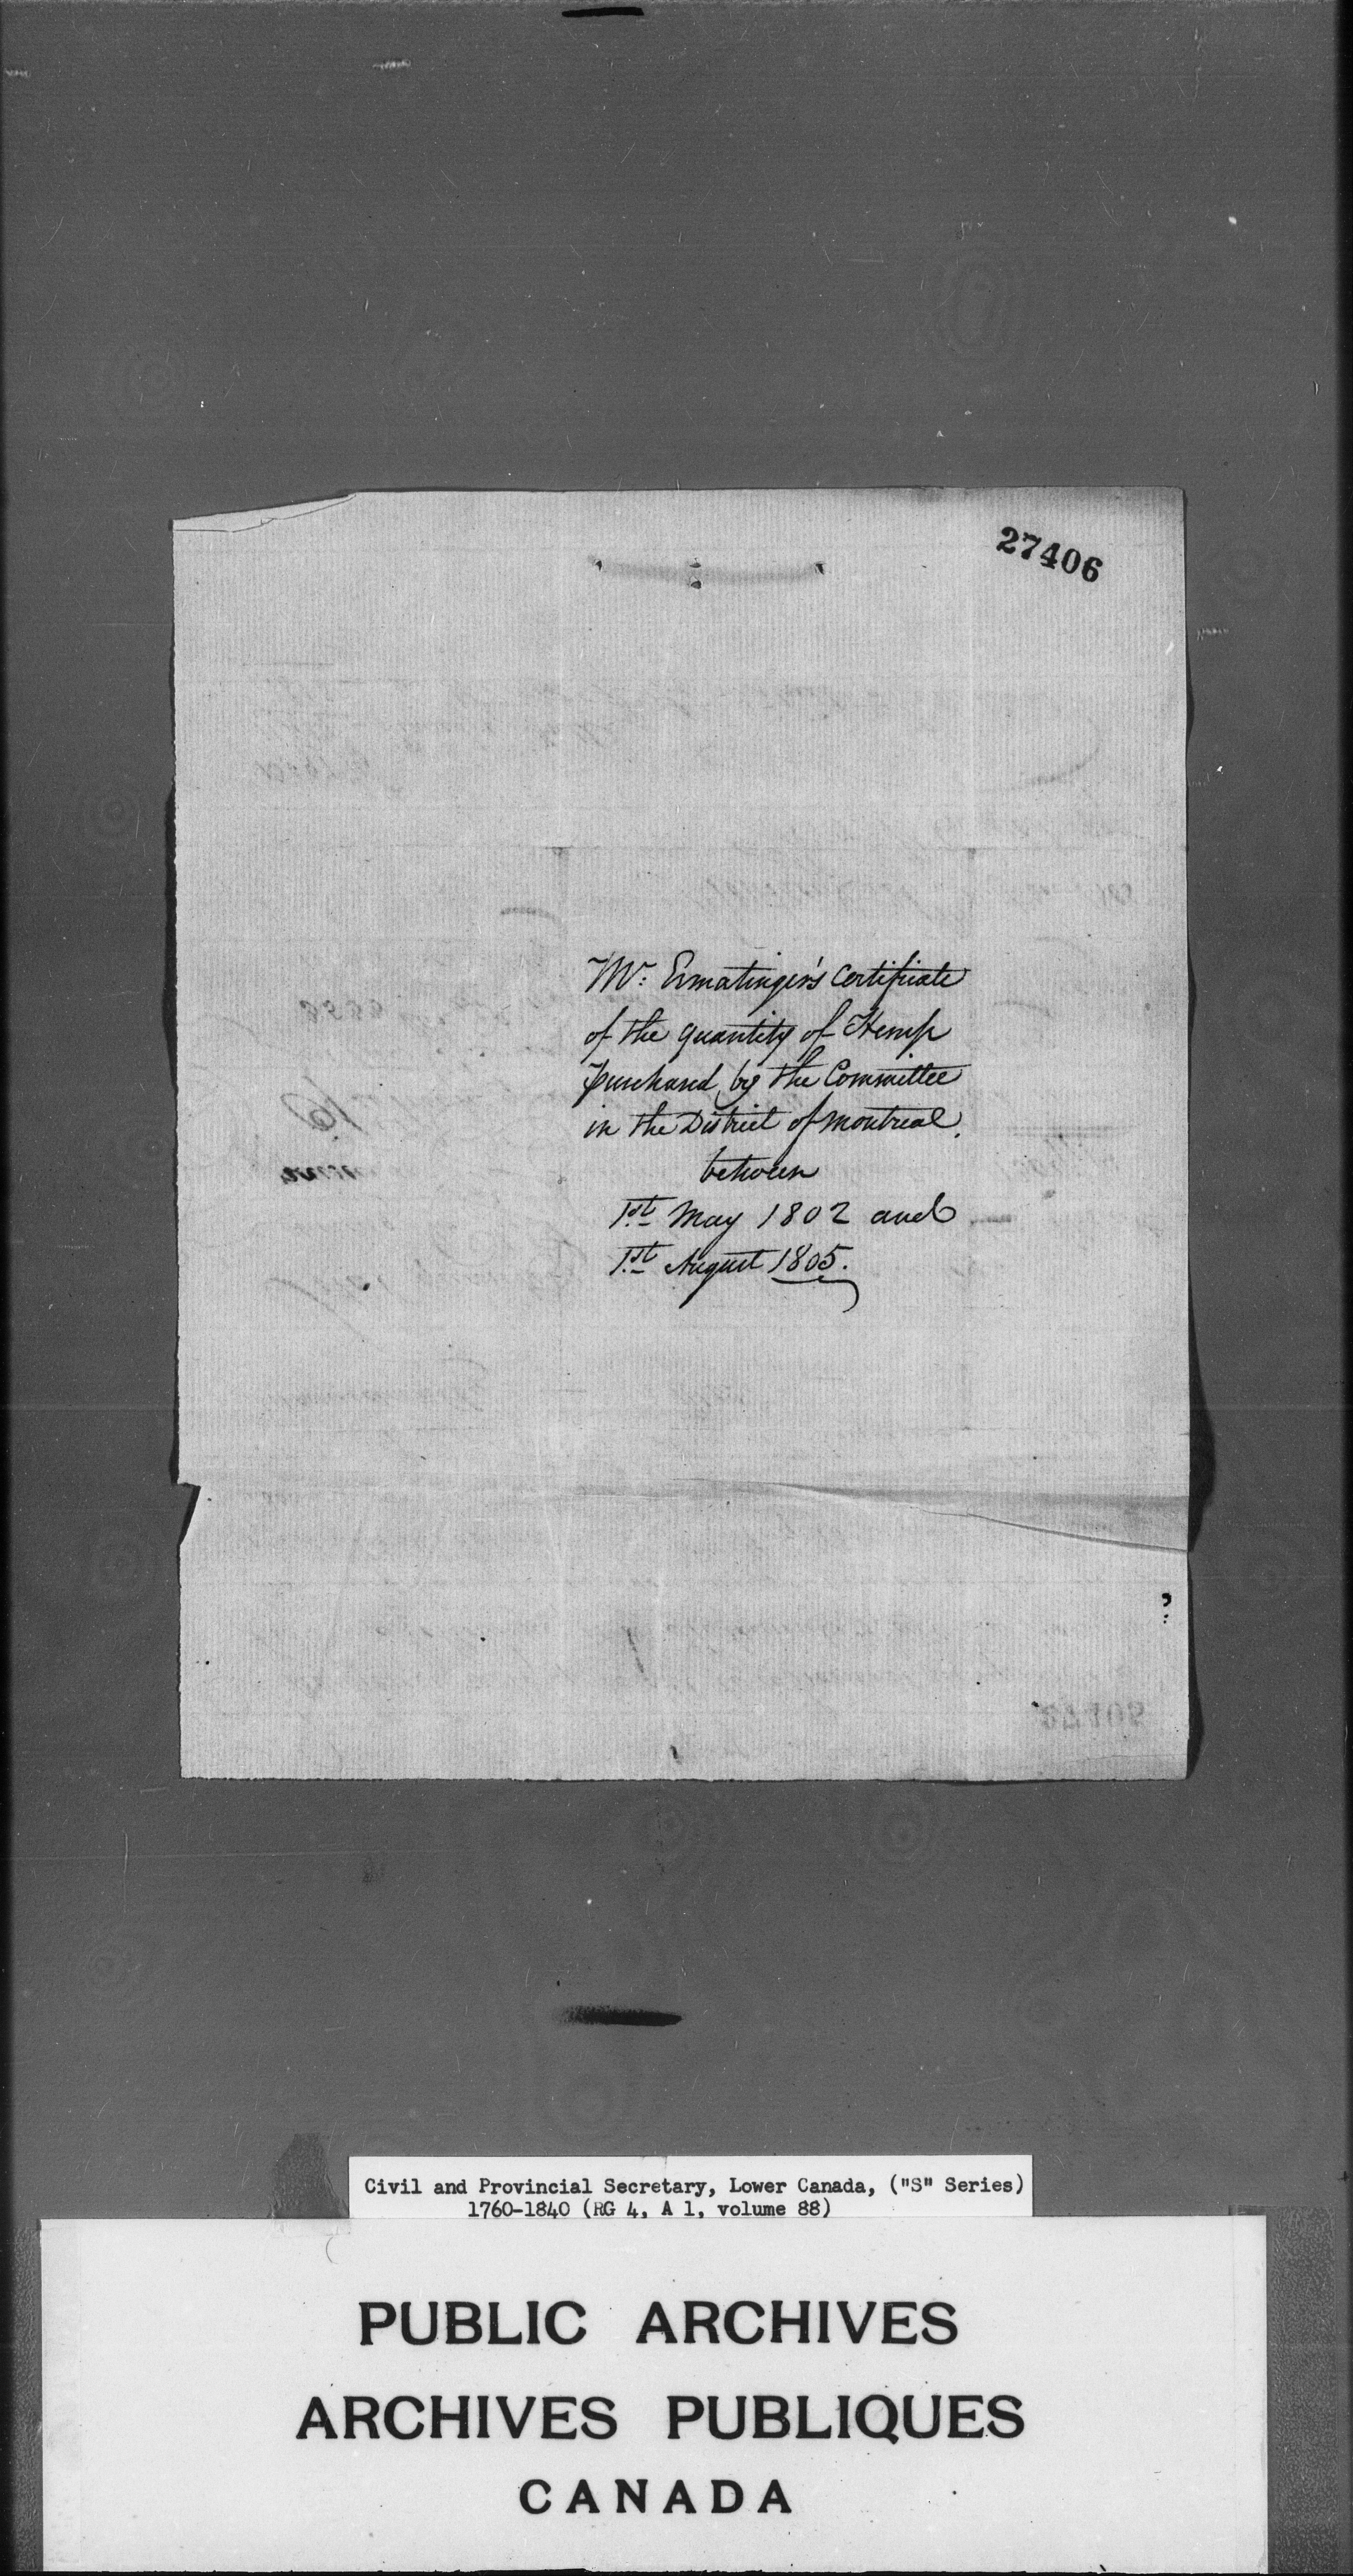 27406
Mr: Ermatinger's Certificate
of the quantity of Hemp
purchased by the Committee
in the District of Montreal.
between
1st May 1802 and
1st August 1805.
Civil and Provincial Secretary, Lower Canada, ("S" Series)
1760-1840 (RG 4, A 1, volume 88)
PUBLIC ARCHIVES
ARCHIVES PUBLIQUES
CANADA